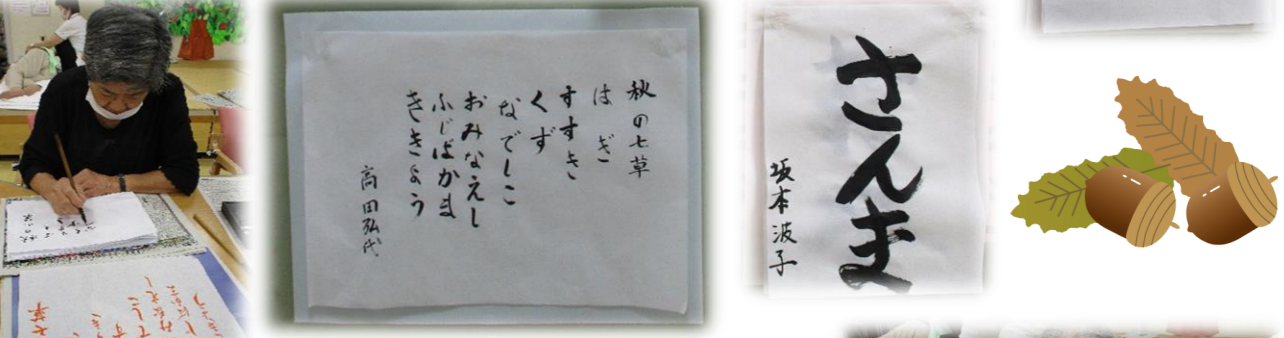 秋の七草
はぎ
すすき
くず
なでしこ
おみなえし
ふじばかま
ききょう
高田弘代
さんま
坂本波子